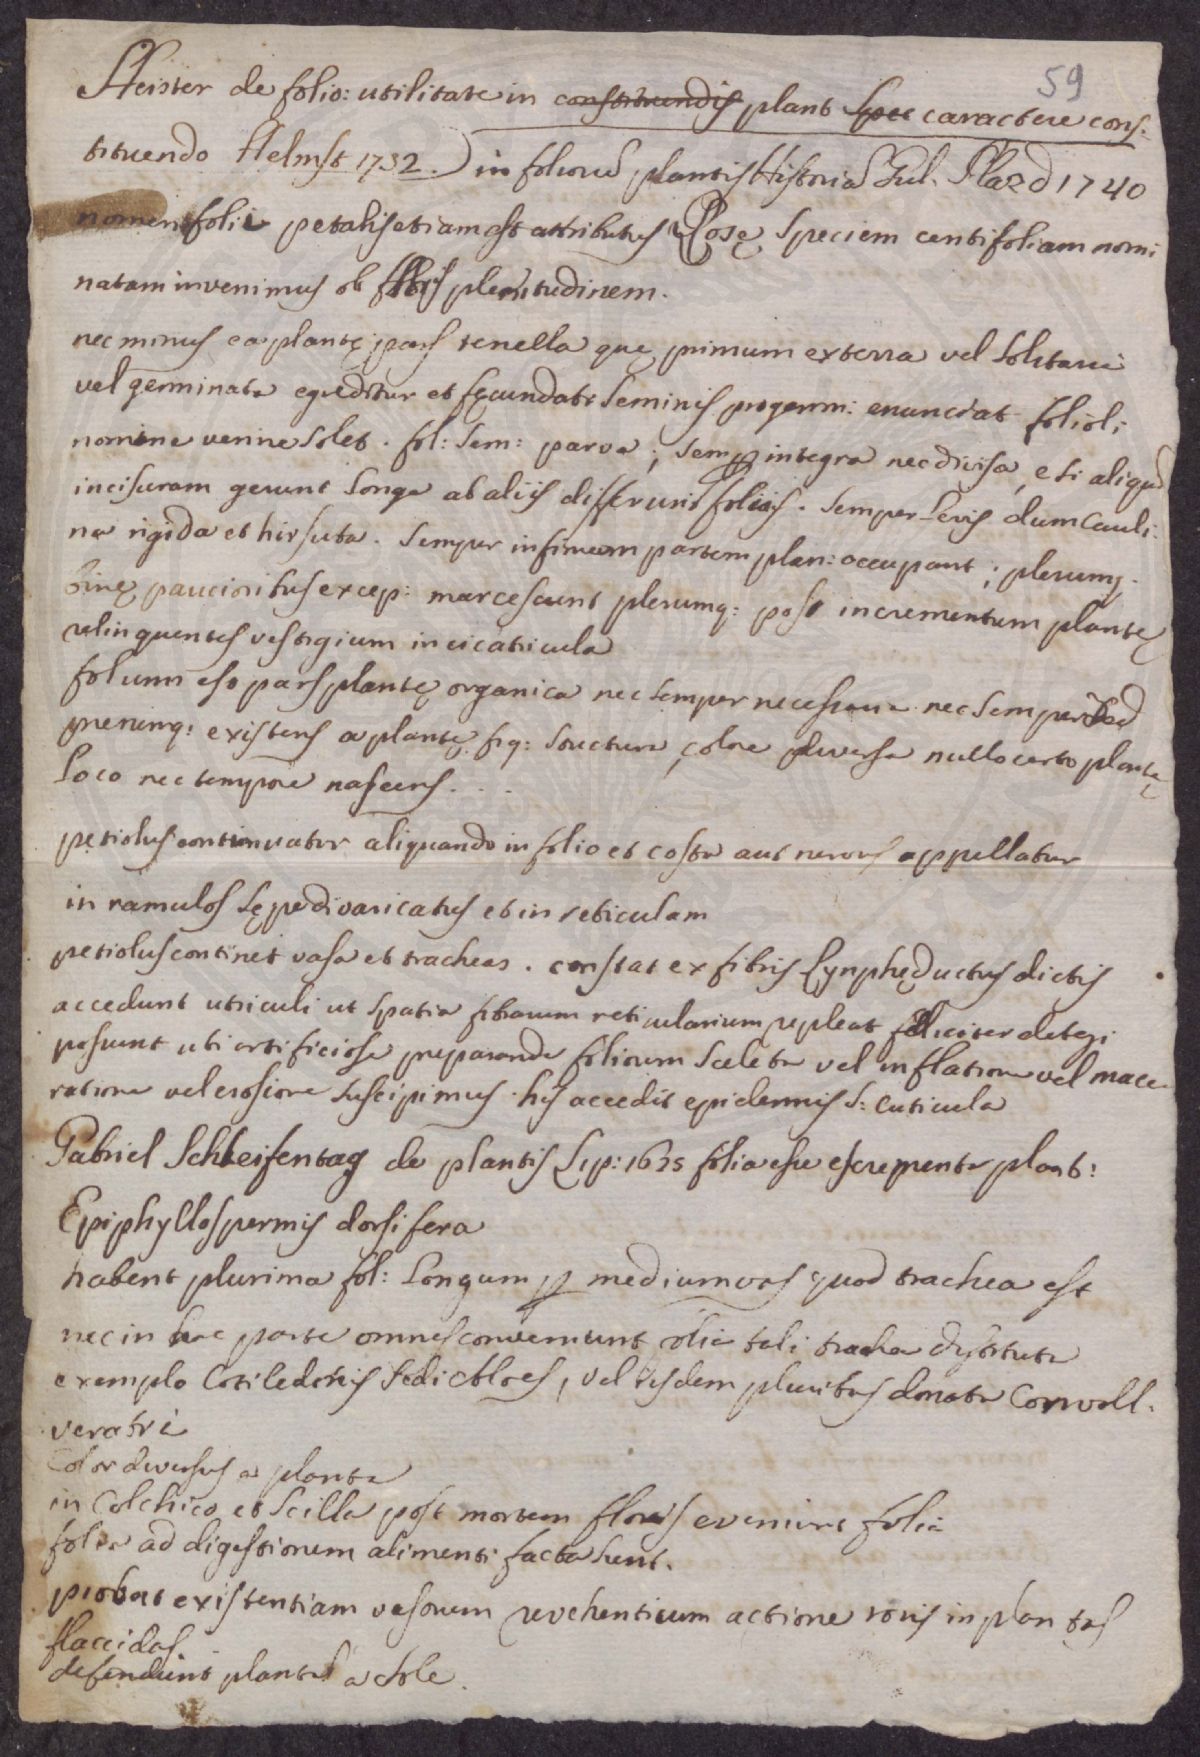 59
Heister de folio: utilitate in constituendis plant spec caractere cons-
tituendo Helmst 1732. in foliorũ plantis Historiâ Gul. Plazd 1740
nomen folii petalis etiam est attributus Rosę speciem centifoliam nomi
natam invenimus ob floris plenitudinem.
nec minus ea plantę pars tenella quę primum ex terra vel solitaria
vel germinata egreditur et fęcundati seminis progerm: enunciat folioli
nomine venire solet. fol: sem: parva; semper integra nec divisa, et si aliquã
incisuram gerunt longe ab aliis differunt foliis. semper levis dum cauli:
na rigida et hirsuta. semper infimam partem plan: occupant; plerumq.
binę paucioribus excep: marcescunt plerumq: post incrementum plantę
relinquentes vestigium in cicatricula
folium est pars plantę organica nec semper necessaria nec semper sed
plerumq: existens a plantę fig: structura, colore diversa nullo certo plantę
loco nec tempore nascens. . .
petiolus continuatur aliquando in folio et costa aut nervus appellatur
in ramulos sępe divaricatus et in reticulam
petiolus continet vasa et tracheas. constat ex fibris lynphęductus dictis
accedunt utriculi ut spatia fibrarum reticularium repleat feliciter detegi
possunt ubi artificiose preparanda foliorum sceleta vel inflatione vel mace
ratione vel erosione suscipimus. his accedit epidermis s: cuticula
Gabriel Schleifentag de plantis Lip: 1635 folia esse escrementa plant:
Epiphyllospermis dorsifera
habent plurima fol: longum per medium vas quod trachea est
nec in hac parte omnes conveniunt olia tali trachea destituta
exemplo Cotiledonis sedi Aloes, vel iisdem pluribus donata Convoll.
veratri
Color diversus a planta
in Colchico et Scilla post mortem floris eveniunt folia
folia ad digestionem alimenti facta sunt.
probat existentiam vasorum revehentium actione roris in plantas
flaccidas
defendunt plantas a sole.